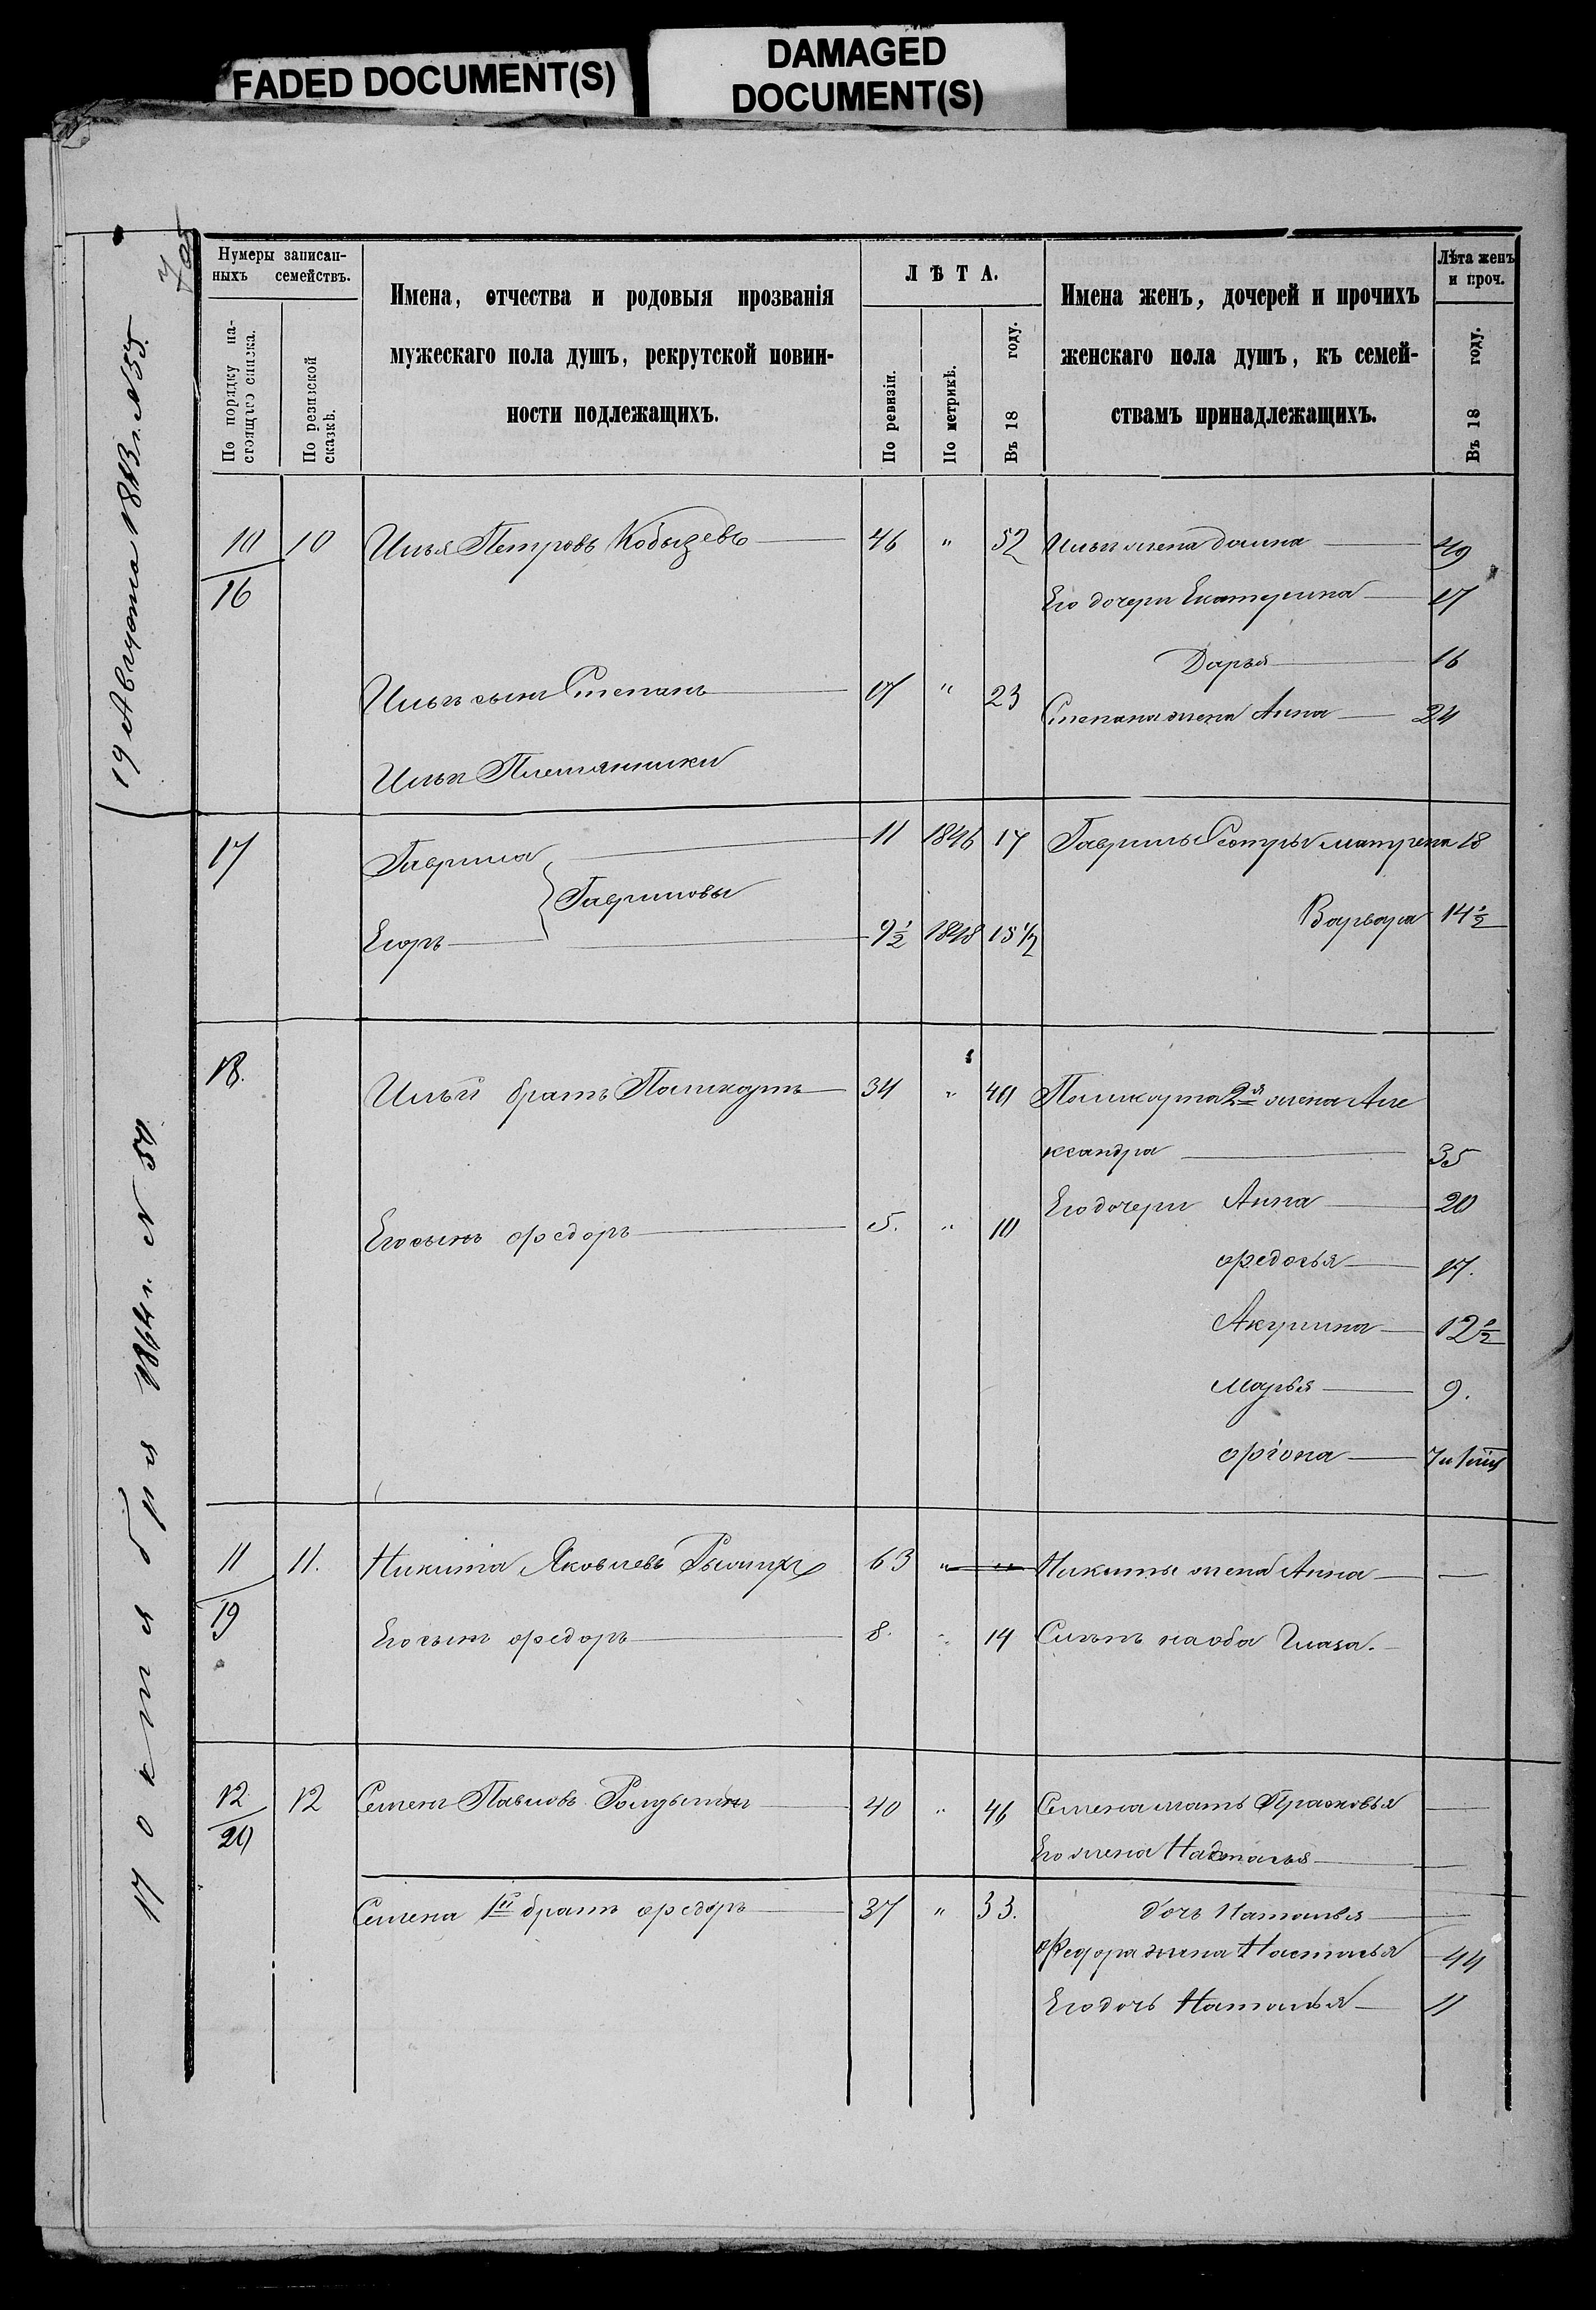 FADED DOCUMENT(S)
DAMAGED
DOCUMENT(S)
Нумеры записан-
ныхъ семействъ.
По порядку на-
стоящаго списка.
По ревизской
сказкѣ.
Имена, отчества и родовыя прозванія
мужескаго пола душъ, рекрутской повин-
ности подлежащихъ.
ЛѢТА.
По ревизіи.
По метрикѣ.
Въ 18 году.
Имена женъ, дочерей и прочихъ
женскаго пола душъ, къ семей-
ствамъ принадлежащихъ.
Лѣта женъ
и проч.
Въ 18 году.
19 Августа 1863 г. N 55.
17 октября 1864 г. N 54
10 10 Илья Петровъ Кобызевъ 46 " 52 Ильи жена Домна 49
16 Его дочери Екатерина 17
Дарья 16
Ильи сынъ Степанъ 17 " 23
Степана жена Анна 24
Ильи Племянники
17 Гаврила 11 1846 17 Гаврилы Сестры Матрена 18
Гавриловы
Егоръ 9½ 1848 15½ Варвара 14½
18. Ильи братъ Поликарпъ 34 " 40 Поликарпа 2я жена Але
ксандра 35
Его дочери Анна 20
Его сынъ Ѳедоръ 5. " 10
Ѳедосья 17.
Акулина 12½
Марья 9.
11 11. Никита Яковлевъ 63 " " Никиты жена Анна —
19 Его сынъ Ѳедоръ 8. " 14 Слѣпъ на оба Глаза.
12 12 Семенъ Павловъ 40 " 46 Семена мать Прасковья —
20 Его жена
Семена 1й братъ Ѳедоръ 37 " 33. дочь Наталья —
Ѳедора жена Настасья 44
Его дочь Наталья 11